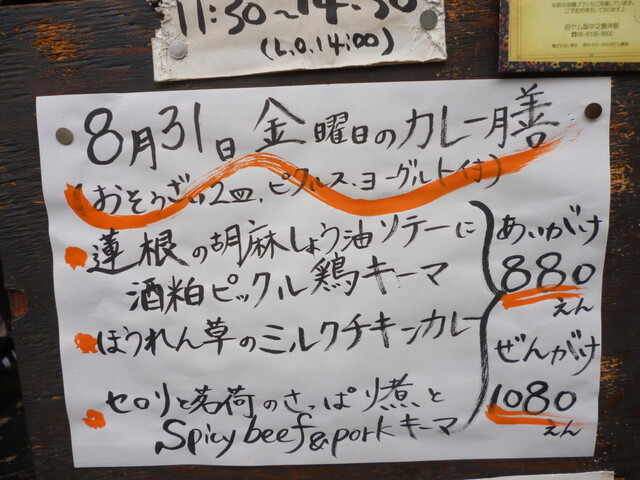 11:30~14:30
(L.O.14:00)
旧ヤム邸中之島洋館
8月31日 金曜日のカレー膳
(おそうざい2皿、ピクルス、ヨーグルト付)
蓮根の胡麻しょう油ソテーに
酒粕ピックル鶏キーマ
ほうれん草のミルクチキンカレー
セロリと茗荷のさっぱり煮と
Spicy beef & pork キーマ
あいがけ
880
えん
ぜんがけ
1080
えん